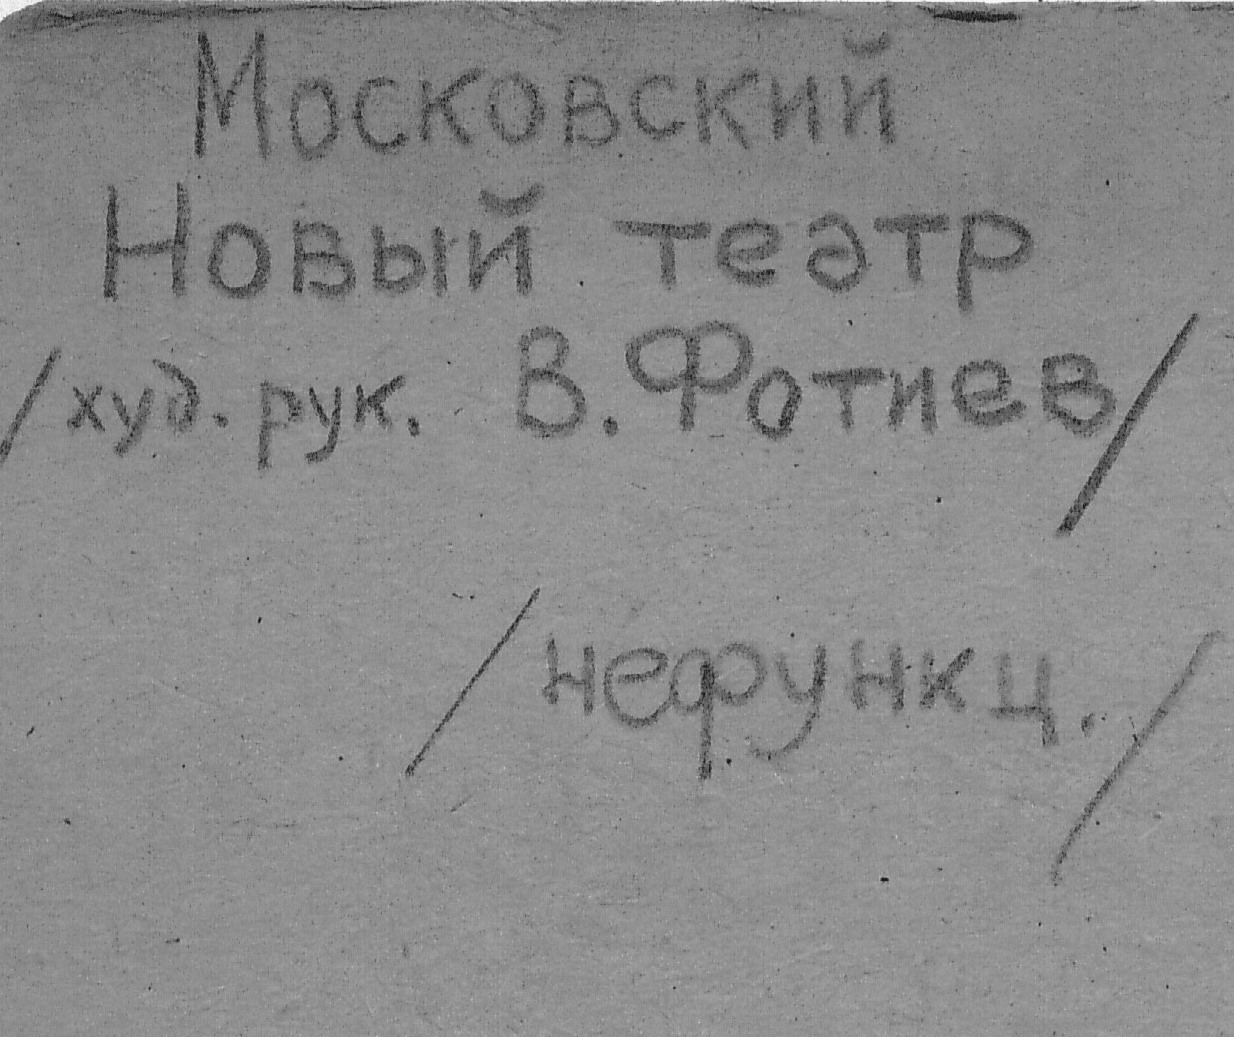 Московский
Новый театр
/худ. рук. В. Фотиев/
/нефункц./